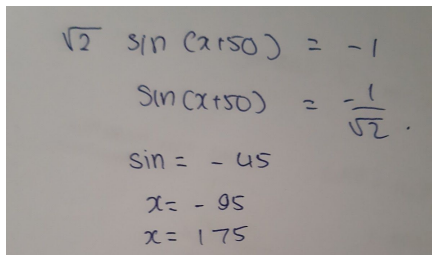 √2 sin (x+50) = -1
sin(x+50) = -1/√2.
sin = - 45
x= - 95
x= 175